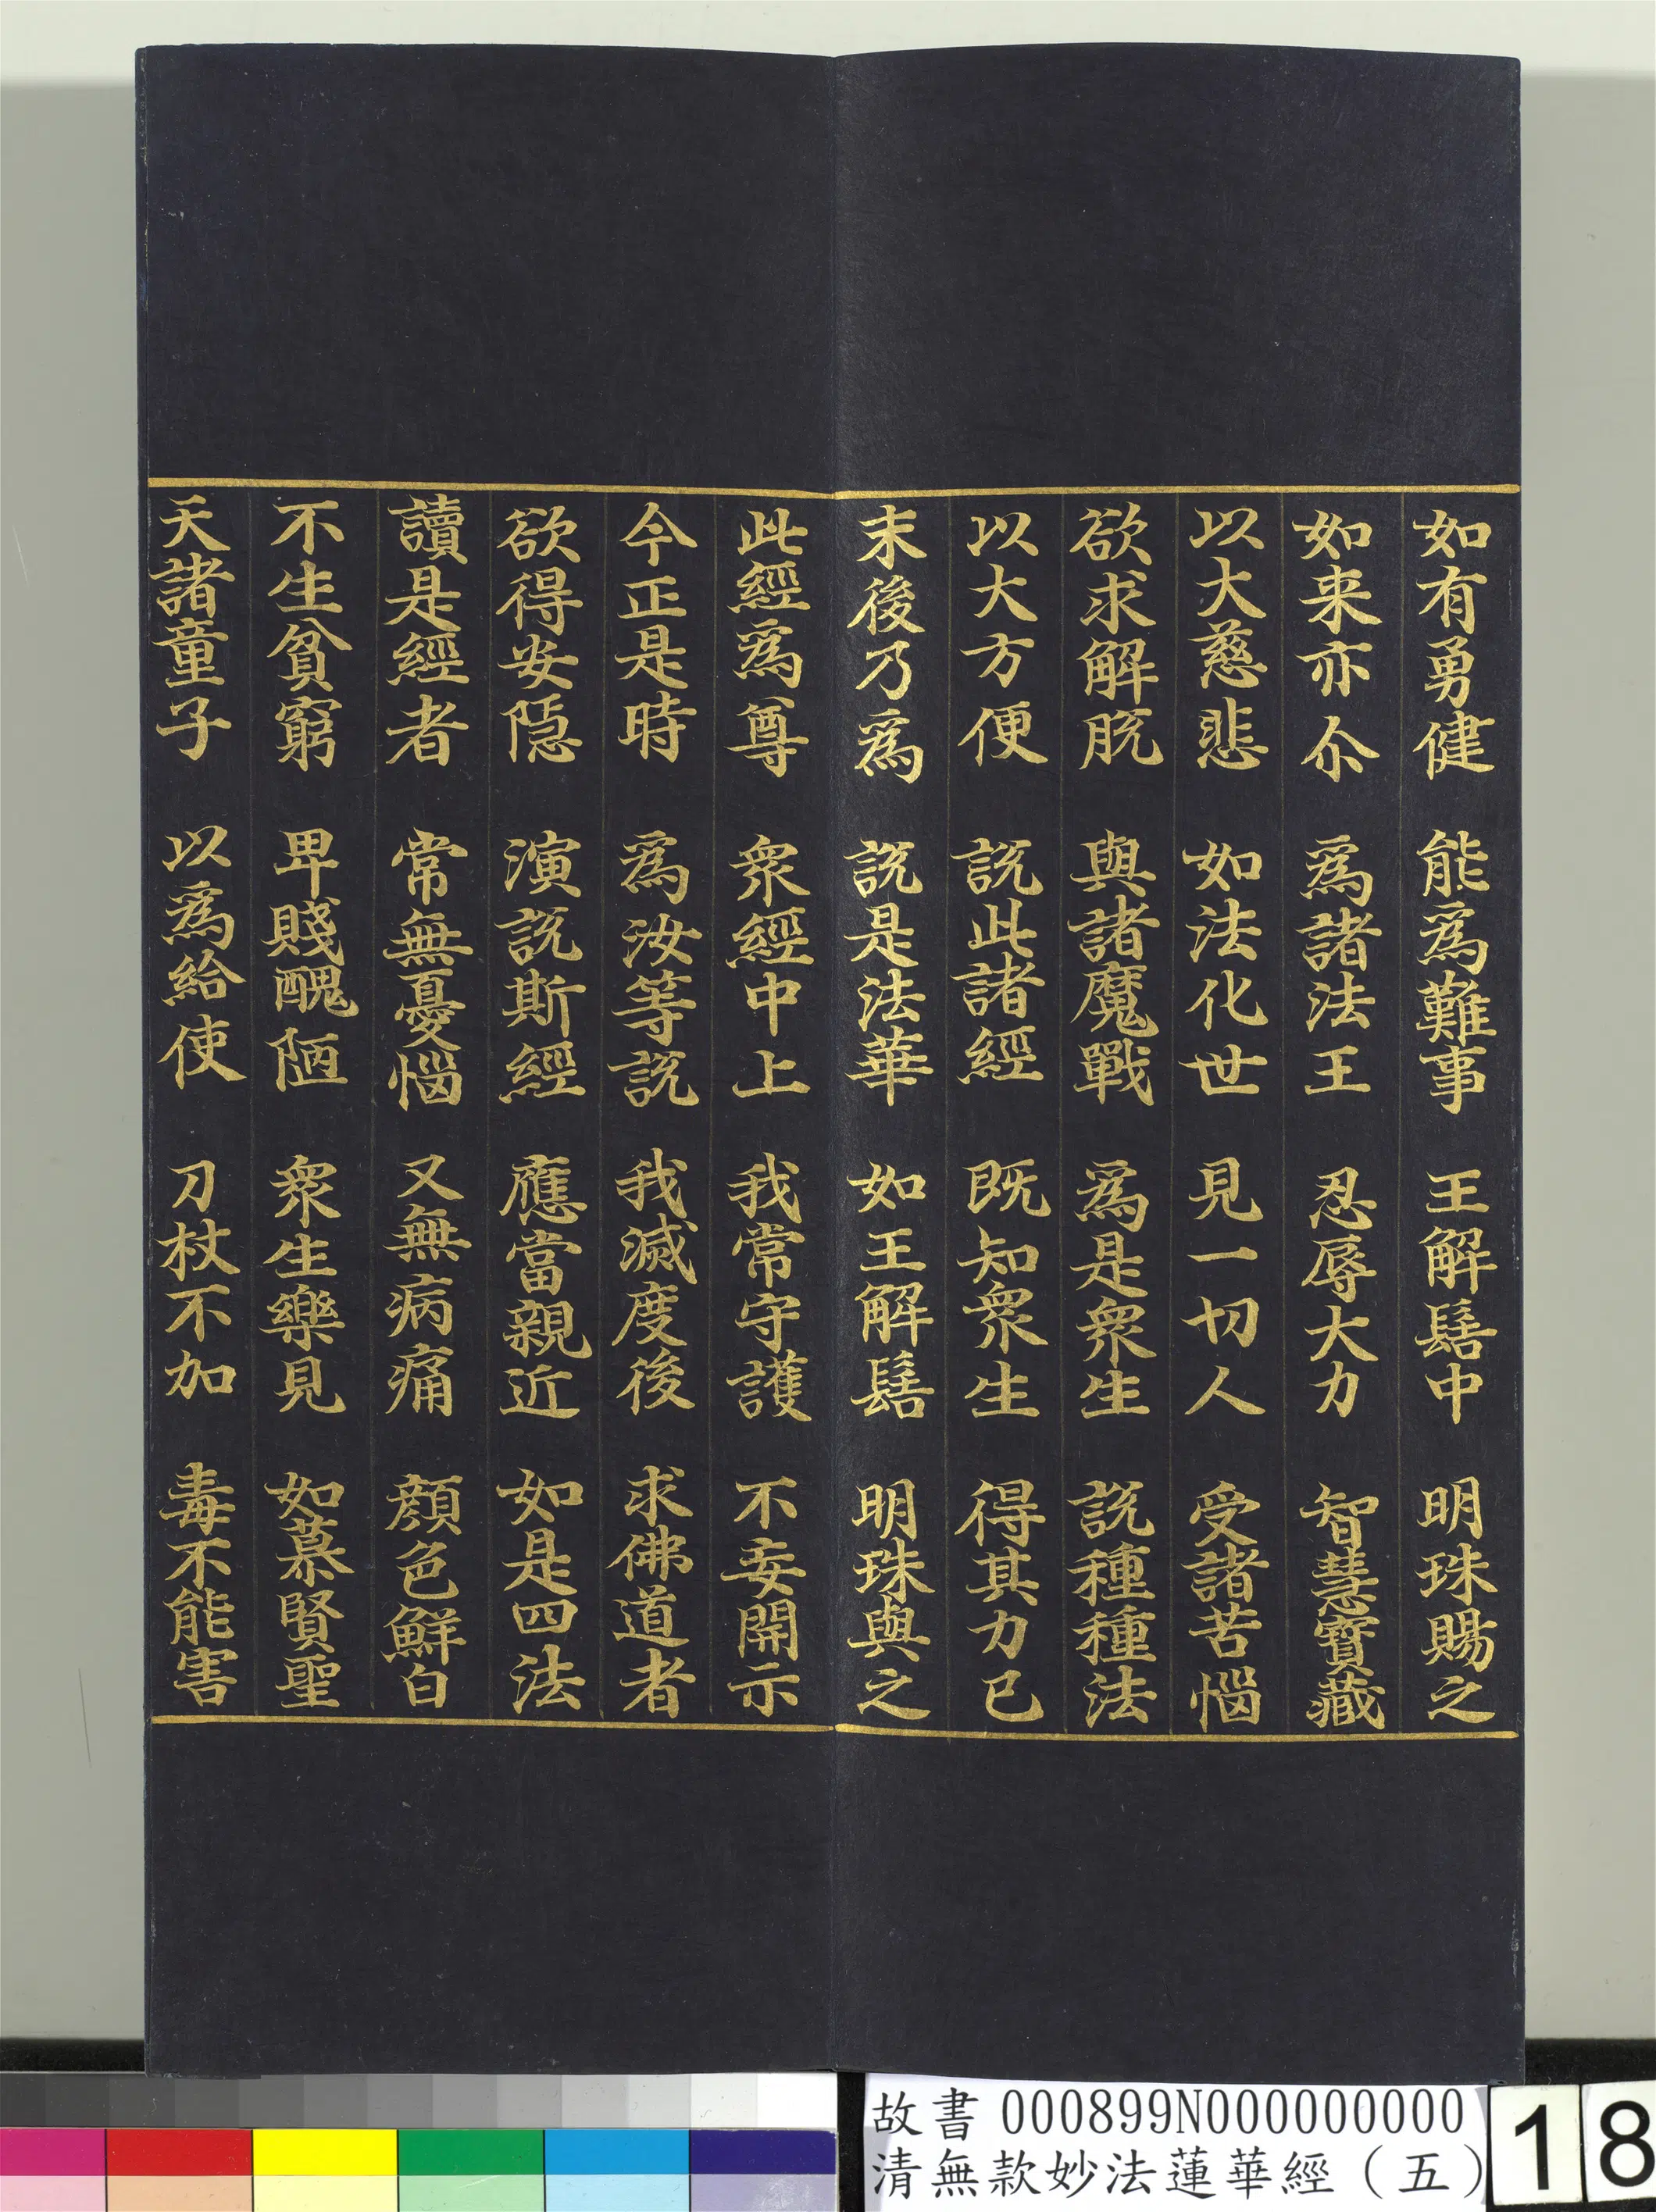 如有勇健　能爲難事　王解髻中　明珠賜之
如来亦尒　爲諸法王　忍辱大力　智慧寳藏
以大慈悲　如法化世　見一切人　受諸苦惱
欲求解脫　與諸魔戰　爲是衆生　説種種法
以大方便　説此諸經　既知衆生　得其力已
末後乃爲　説是法華　如王解髻　明珠與之
此經爲尊　衆經中上　我常守護　不妄開示
今正是時　爲汝等説　我滅度後　求佛道者
欲得安隱　演説斯經　應當親近　如是四法
讀是經者　常無憂惱　又無病痛　顔色鮮白
不生貧窮　卑賤醜陋　衆生樂見　如慕賢聖
天諸童子　以爲給使　刀杖不加　毒不能害
故書 000899N000000000
清無款妙法蓮華經（五）
18